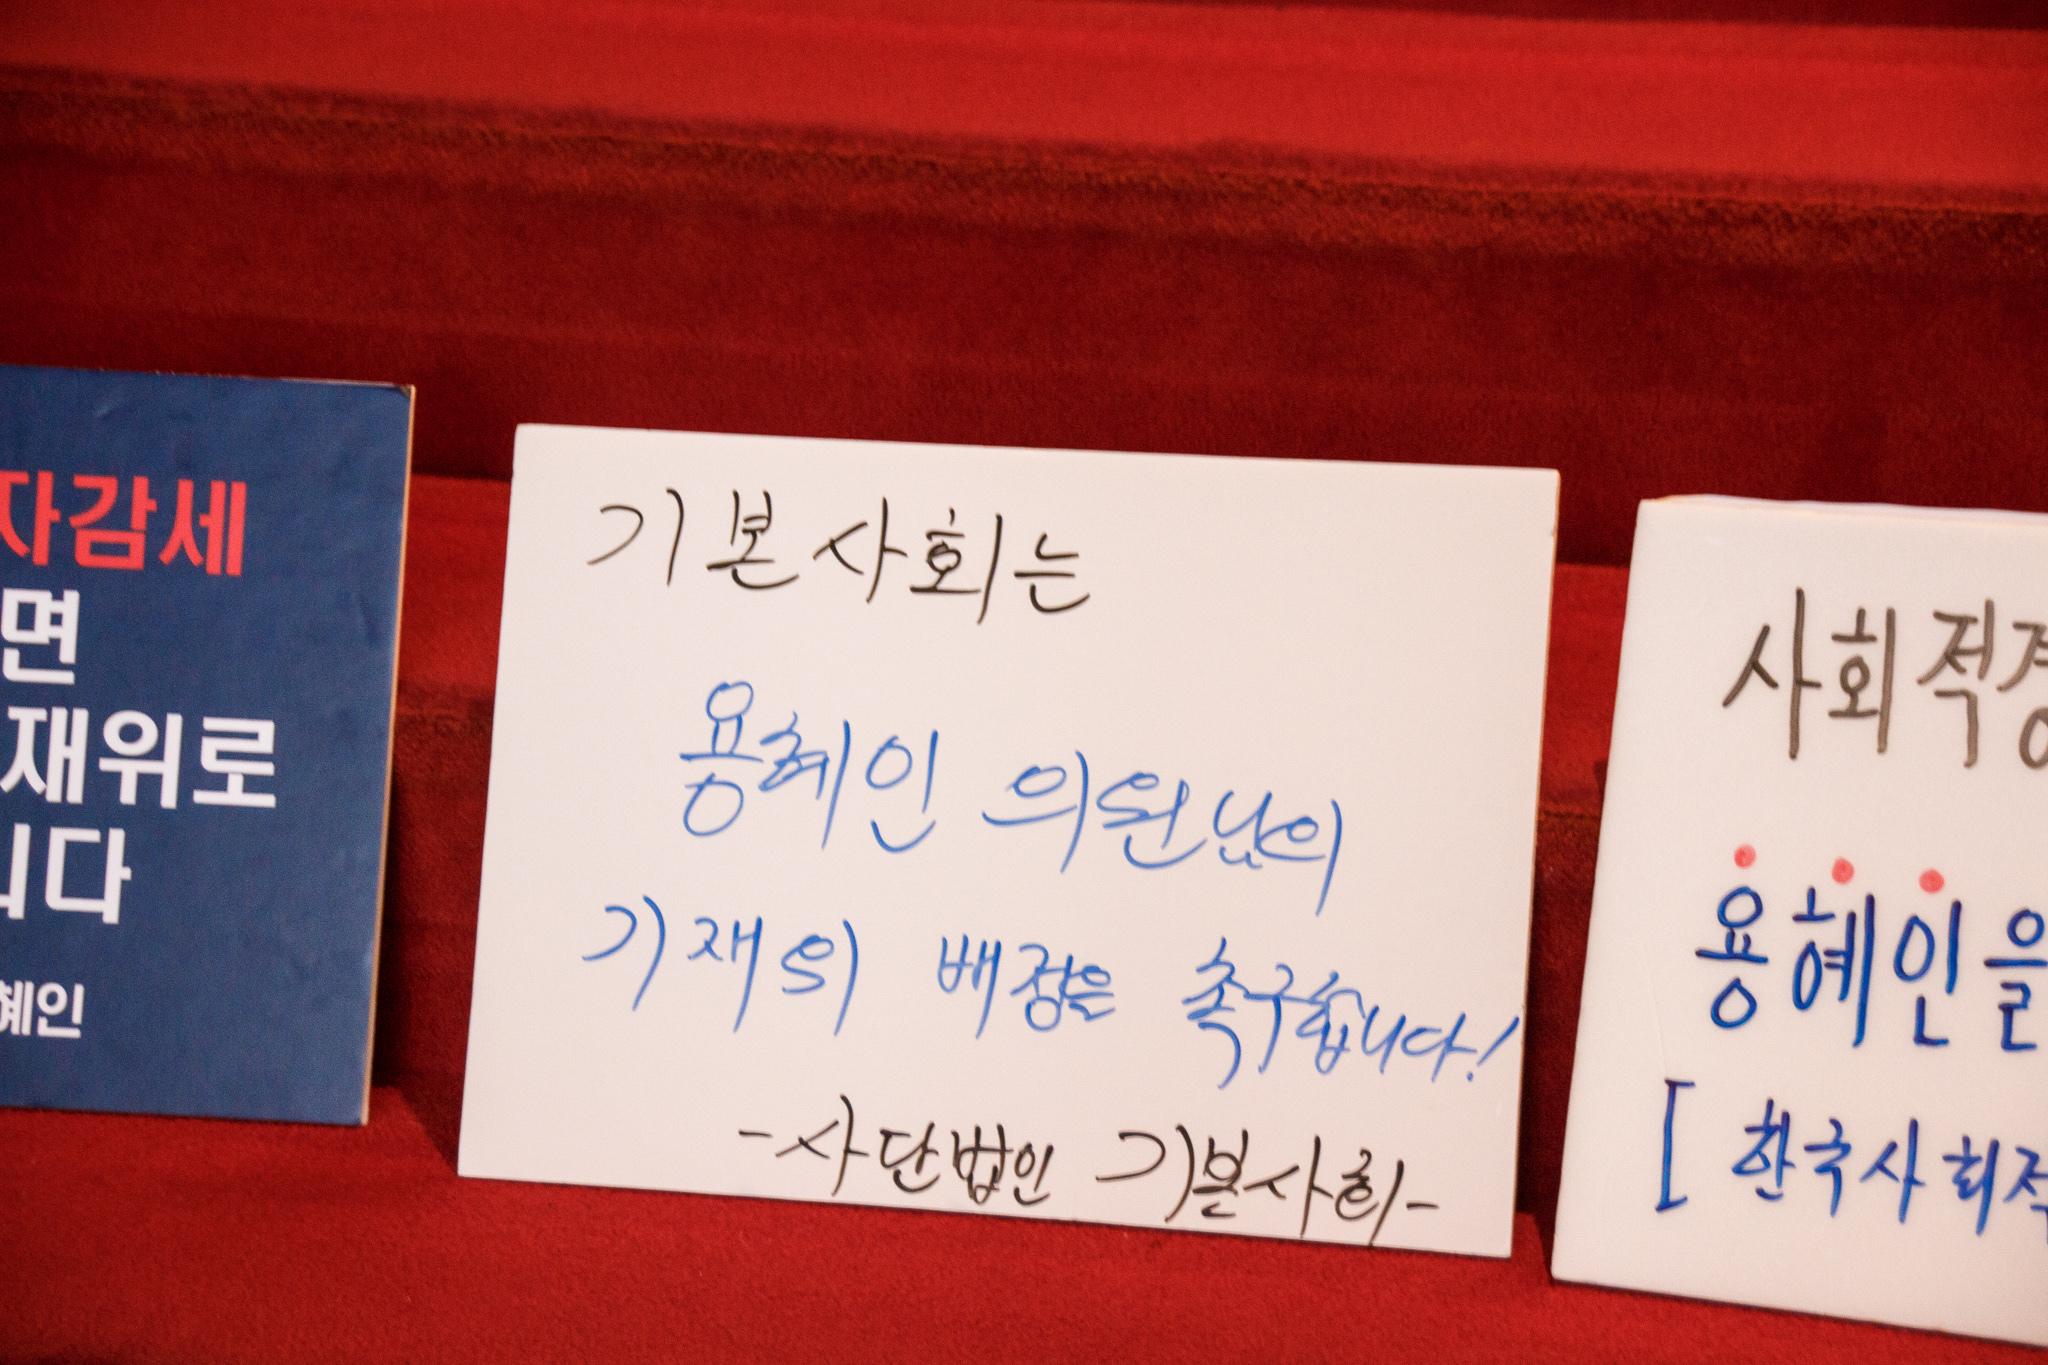 자감세
면
재위로
니다
혜인
기본사회는
용혜인 의원님의
기재위 배정을 촉구합니다!
-사단법인 기본사회-
사회적경
용혜인을
[한국사회적